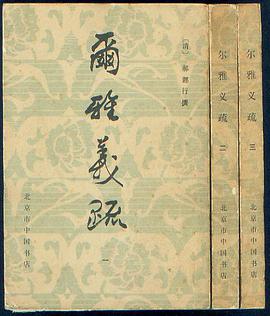 [清] 郝懿行撰
爾雅義疏
一
北京市中国书店
尔雅义疏 二
北京市中国书店
尔雅义疏 三
北京市中国书店